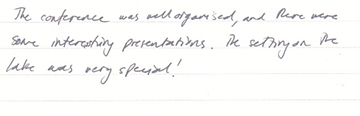 The conference was well organised, and there were
some interesting presentations. The setting on the
lake was very special!